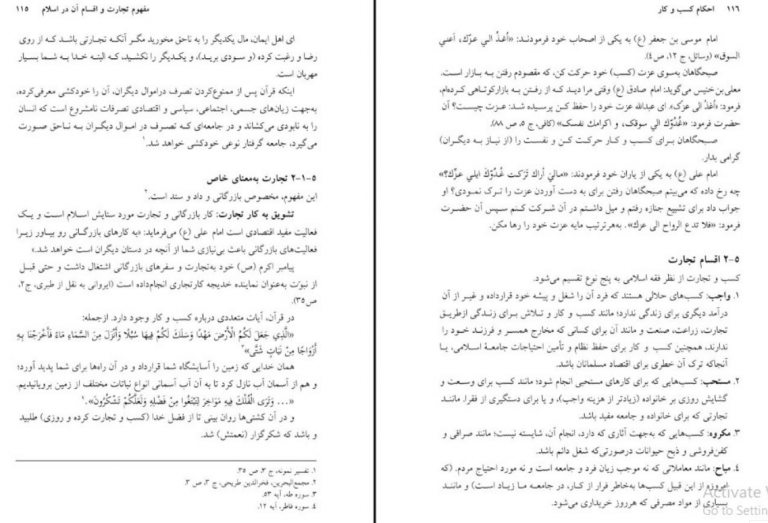 مفهوم تجارت و اقسام آن در اسلام ۱۱۵
ای اهل ایمان، مال یکدیگر را به ناحق مخورید مگر آنکه تجارتی باشد که از روی
رضا و رغبت کرده (و سودی برید)، و یکدیگر را نکشید، که البته خدا به شما بسیار
مهربان است.
اینکه قرآن پس از ممنوع‌کردن تصرف دراموال دیگران، آن را خودکشی معرفی‌کرده،
به‌جهت زیان‌های جسمی، اجتماعی، سیاسی و اقتصادی تصرفات نامشروع است که انسان
را به نابودی می‌کشاند و در جامعه‌ای که تصرف در اموال دیگران به ناحق صورت
می‌گیرد، جامعه گرفتار نوعی خودکشی خواهد شد.۱
۵-۱-۲ تجارت به‌معنای خاص
این مفهوم، مخصوص بازرگانی و داد و ستد است.۲
تشویق به کار تجارت: کار بازرگانی و تجارت مورد ستایش اسلام است و یک
فعالیت مفید اقتصادی است امام علی (ع) می‌فرماید: «به کارهای بازرگانی رو بیاور زیرا
فعالیت‌های بازرگانی باعث بی‌نیازی شما از آنچه در دستان دیگران است خواهد شد.»
پیامبر اکرم (ص) خود به‌تجارت و سفرهای بازرگانی اشتغال داشت و حتی قبل
از نبوّت به‌عنوان نماینده خدیجه کارتجاری انجام‌داده است (ایروانی به نقل از طبری، ج۲،
ص۳۵).
در قرآن، آیات متعددی درباره کسب و کار وجود دارد. ازجمله:
«الَّذِي جَعَلَ لَكُمُ الْأَرْضَ مَهْدًا وَسَلَكَ لَكُمْ فِيهَا سُبُلًا وَأَنْزَلَ مِنَ السَّمَاءِ مَاءً فَأَخْرَجْنَا بِهِ
أَزْوَاجًا مِنْ نَبَاتٍ شَتَّى»۳
همان خدایی که زمین را آسایشگاه شما قرارداد و در آن راه‌ها برای شما پدید آورد؛
و هم از آسمان آب نازل کرد تا به آن آب آسمانی انواع نباتات مختلف از زمین برویانیدیم.
«... وَتَرَى الْفُلْكَ فِيهِ مَوَاخِرَ لِتَبْتَغُوا مِنْ فَضْلِهِ وَلَعَلَّكُمْ تَشْكُرُونَ».۴
و در آن کشتی‌ها روان بینی تا از فضل خدا (کسب و تجارت کرده و روزی) طلبید
و باشد که شکرگزار (نعمتش) شد.
۱. تفسیر نمونه، ج ۳، ص ۳۵.
۲. مجمع‌البحرین، فخرالدین طریحی، ج ۳، ص ۳.
۳. سوره طه، آیه ۵۳.
۴. سوره فاطر، آیه ۱۲.
۱۱۶ احکام کسب و کار
امام موسی بن جعفر (ع) به یکی از اصحاب خود فرمودند: «اُغدُ الی عزّک، اَعني
السوق» (وسائل، ج ۱۲، ص ٤).
صبحگاهان به‌سوی عزت (کسب) خود حرکت کن، که مقصودم رفتن به بازار است.
معلی‌بن‌خنیس می‌گوید: امام صادق (ع) وقتی مرا دید که از رفتن به بازارکوتاهی کرده‌ام،
فرمود: «اُغدُ الی عزّک». ای عبدالله عزت خود را حفظ کن پرسیده شد: عزت چیست؟ آن
حضرت فرمود: «غُدُوُّك الي سوقك، و اكرامك نفسك» (کافی، ج ۵، ص ۸۸).
صبحگاهان برای کسب و کار حرکت کن و نفست را (از نیاز به دیگران)
گرامی بدار.
امام علی (ع) به یکی از یاران خود فرمودند: «مـالِيَ أراكَ تَرَكتَ غُدُوَّكَ اِلي عزِّكَ؟»
چه رخ داده که می‌بینم صبحگاهان رفتن برای به دست آوردن عزت را ترک نمودی؟ او
جواب داد برای تشییع جنازه رفتم و میل داشتم در آن شرکت کنم سپس آن حضرت
فرمود: «فلا تدع الرواح الی عزك». به‌هرترتیب مایه عزت خود را رها مکن.
۵-۲ اقسام تجارت
کسب و تجارت از نظر فقه اسلامی به پنج نوع تقسیم می‌شود.
۱. واجب: کسب‌های حلالی هستند که فرد آن را شغل و پیشه خود قرارداده و غیر از آن
درآمد دیگری برای زندگی ندارد؛ مانند کسب و کار و تلاش برای زندگی ازطریق
تجارت، زراعت، صنعت و مانند آن برای کسانی که مخارج همسر و فرزند خود را
ندارند، همچنین کسب و کار برای حفظ نظام و تأمین احتیاجات جامعهٔ اسلامی، یا
آنجاکه ترک آن خطری برای اقتصاد مسلمانان باشد.
۲. مستحب: کسب‌هایی که برای کارهای مستحبی انجام شود؛ مانند کسب برای وسعت و
گشایش روزی بر خانواده (زیادتر از هزینه واجب)، و یا برای دستگیری از فقرا. مانند
تجارتی که برای خانواده و جامعه مفید باشد.
۳. مکروه: کسب‌هایی که به‌جهت آثاری که دارد، انجام آن، شایسته نیست؛ مانند صرافی و
کفن‌فروشی و ذبح حیوانات درصورتی‌که شغل دائم باشد.
۴. مباح: مانند معاملاتی که نه موجب زیان فرد و جامعه است و نه مورد احتیاج مردم. (که
امروزه از این قبیل کسب‌ها به‌خاطر فرار از کار، در جامعه ما زیاد است) و مانند
بسیاری از مواد مصرفی که هرروز خریداری می‌شود.
Activate W
Go to Settin